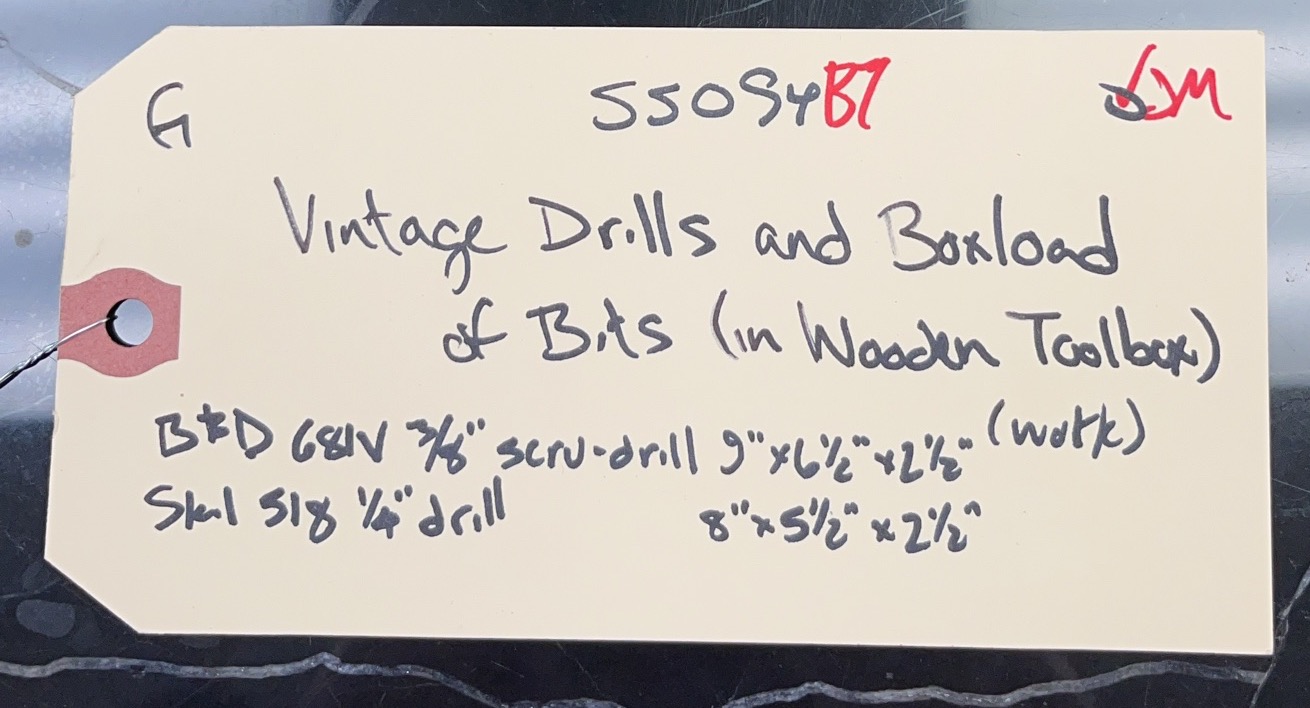 G 55094B7
Vintage Drills and Boxload
of Bits (in Wooden Toolbox)
B&D 681V 3/8" scru-drill 9"x6½"x2½" (work)
Skil 518 ¼" drill 8"x5½"x2½"